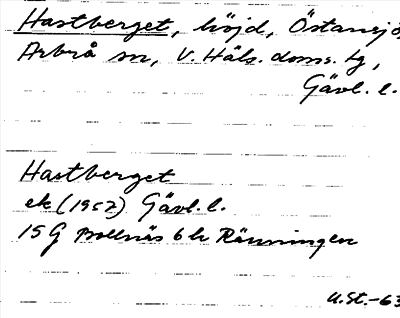 Hastberget, höjd, Östansjö,
Arbrå sn, V. Häls. doms. hg,
Gävl. l.
Hastberget
ek (1952) Gävl. l.
15 G Bollnäs 6 hRänningen
U.St.-63